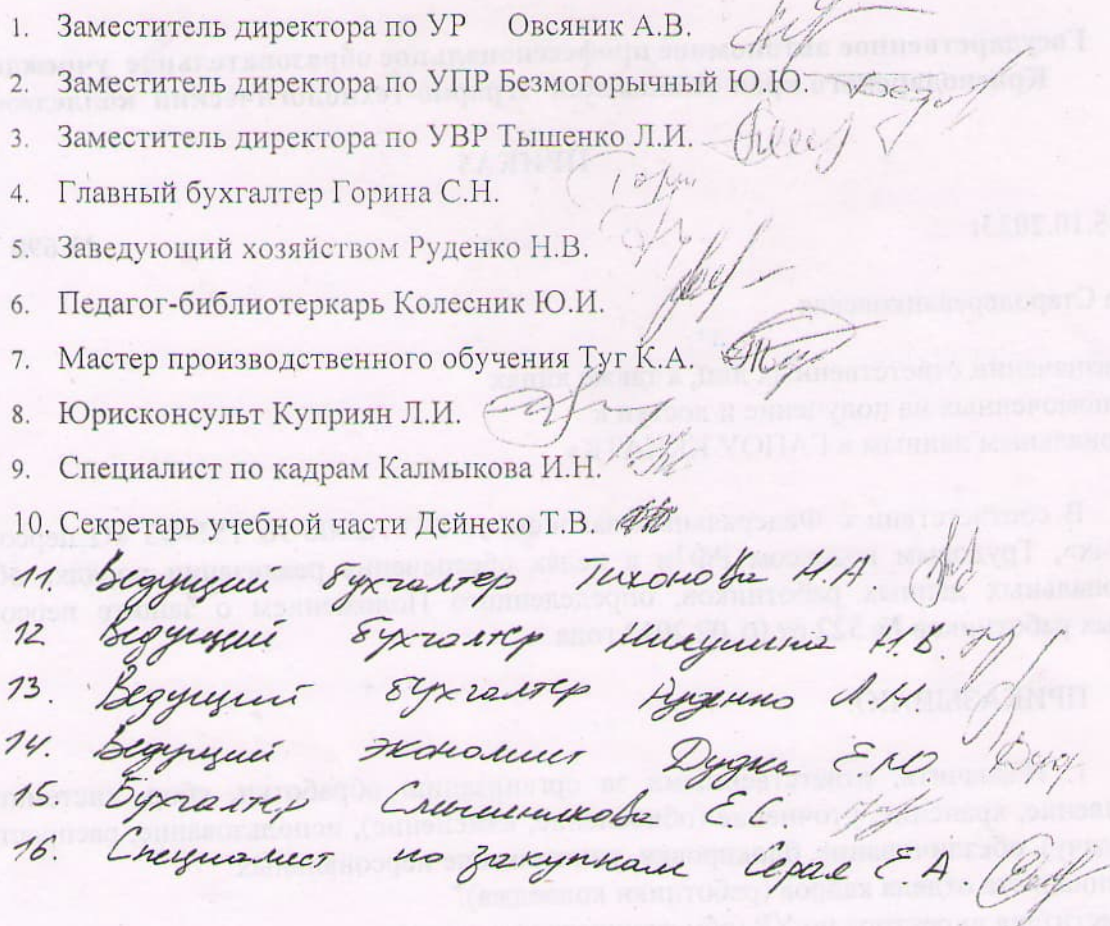 1. Заместитель директора по УР Овсяник А.В.
2. Заместитель директора по УПР Безмогорычный Ю.Ю.
3. Заместитель директора по УВР Тышенко Л.И.
4. Главный бухгалтер Горина С.Н.
5. Заведующий хозяйством Руденко Н.В.
6. Педагог-библиотеркарь Колесник Ю.И.
7. Мастер производственного обучения Туг К.А.
8. Юрисконсульт Куприян Л.И.
9. Специалист по кадрам Калмыкова И.Н.
10. Секретарь учебной части Дейнеко Т.В.
11. Ведущий бухгалтер Тихонова Н.А
12 Ведущий бухгалтер Микулина Н.В.
13. Ведущий бухгалтер Руденко
14. Ведущий экономист Дудка Е.Ю.
15. Бухгалтер Е.С.
16. Специалист по закупкам Серая Е А.